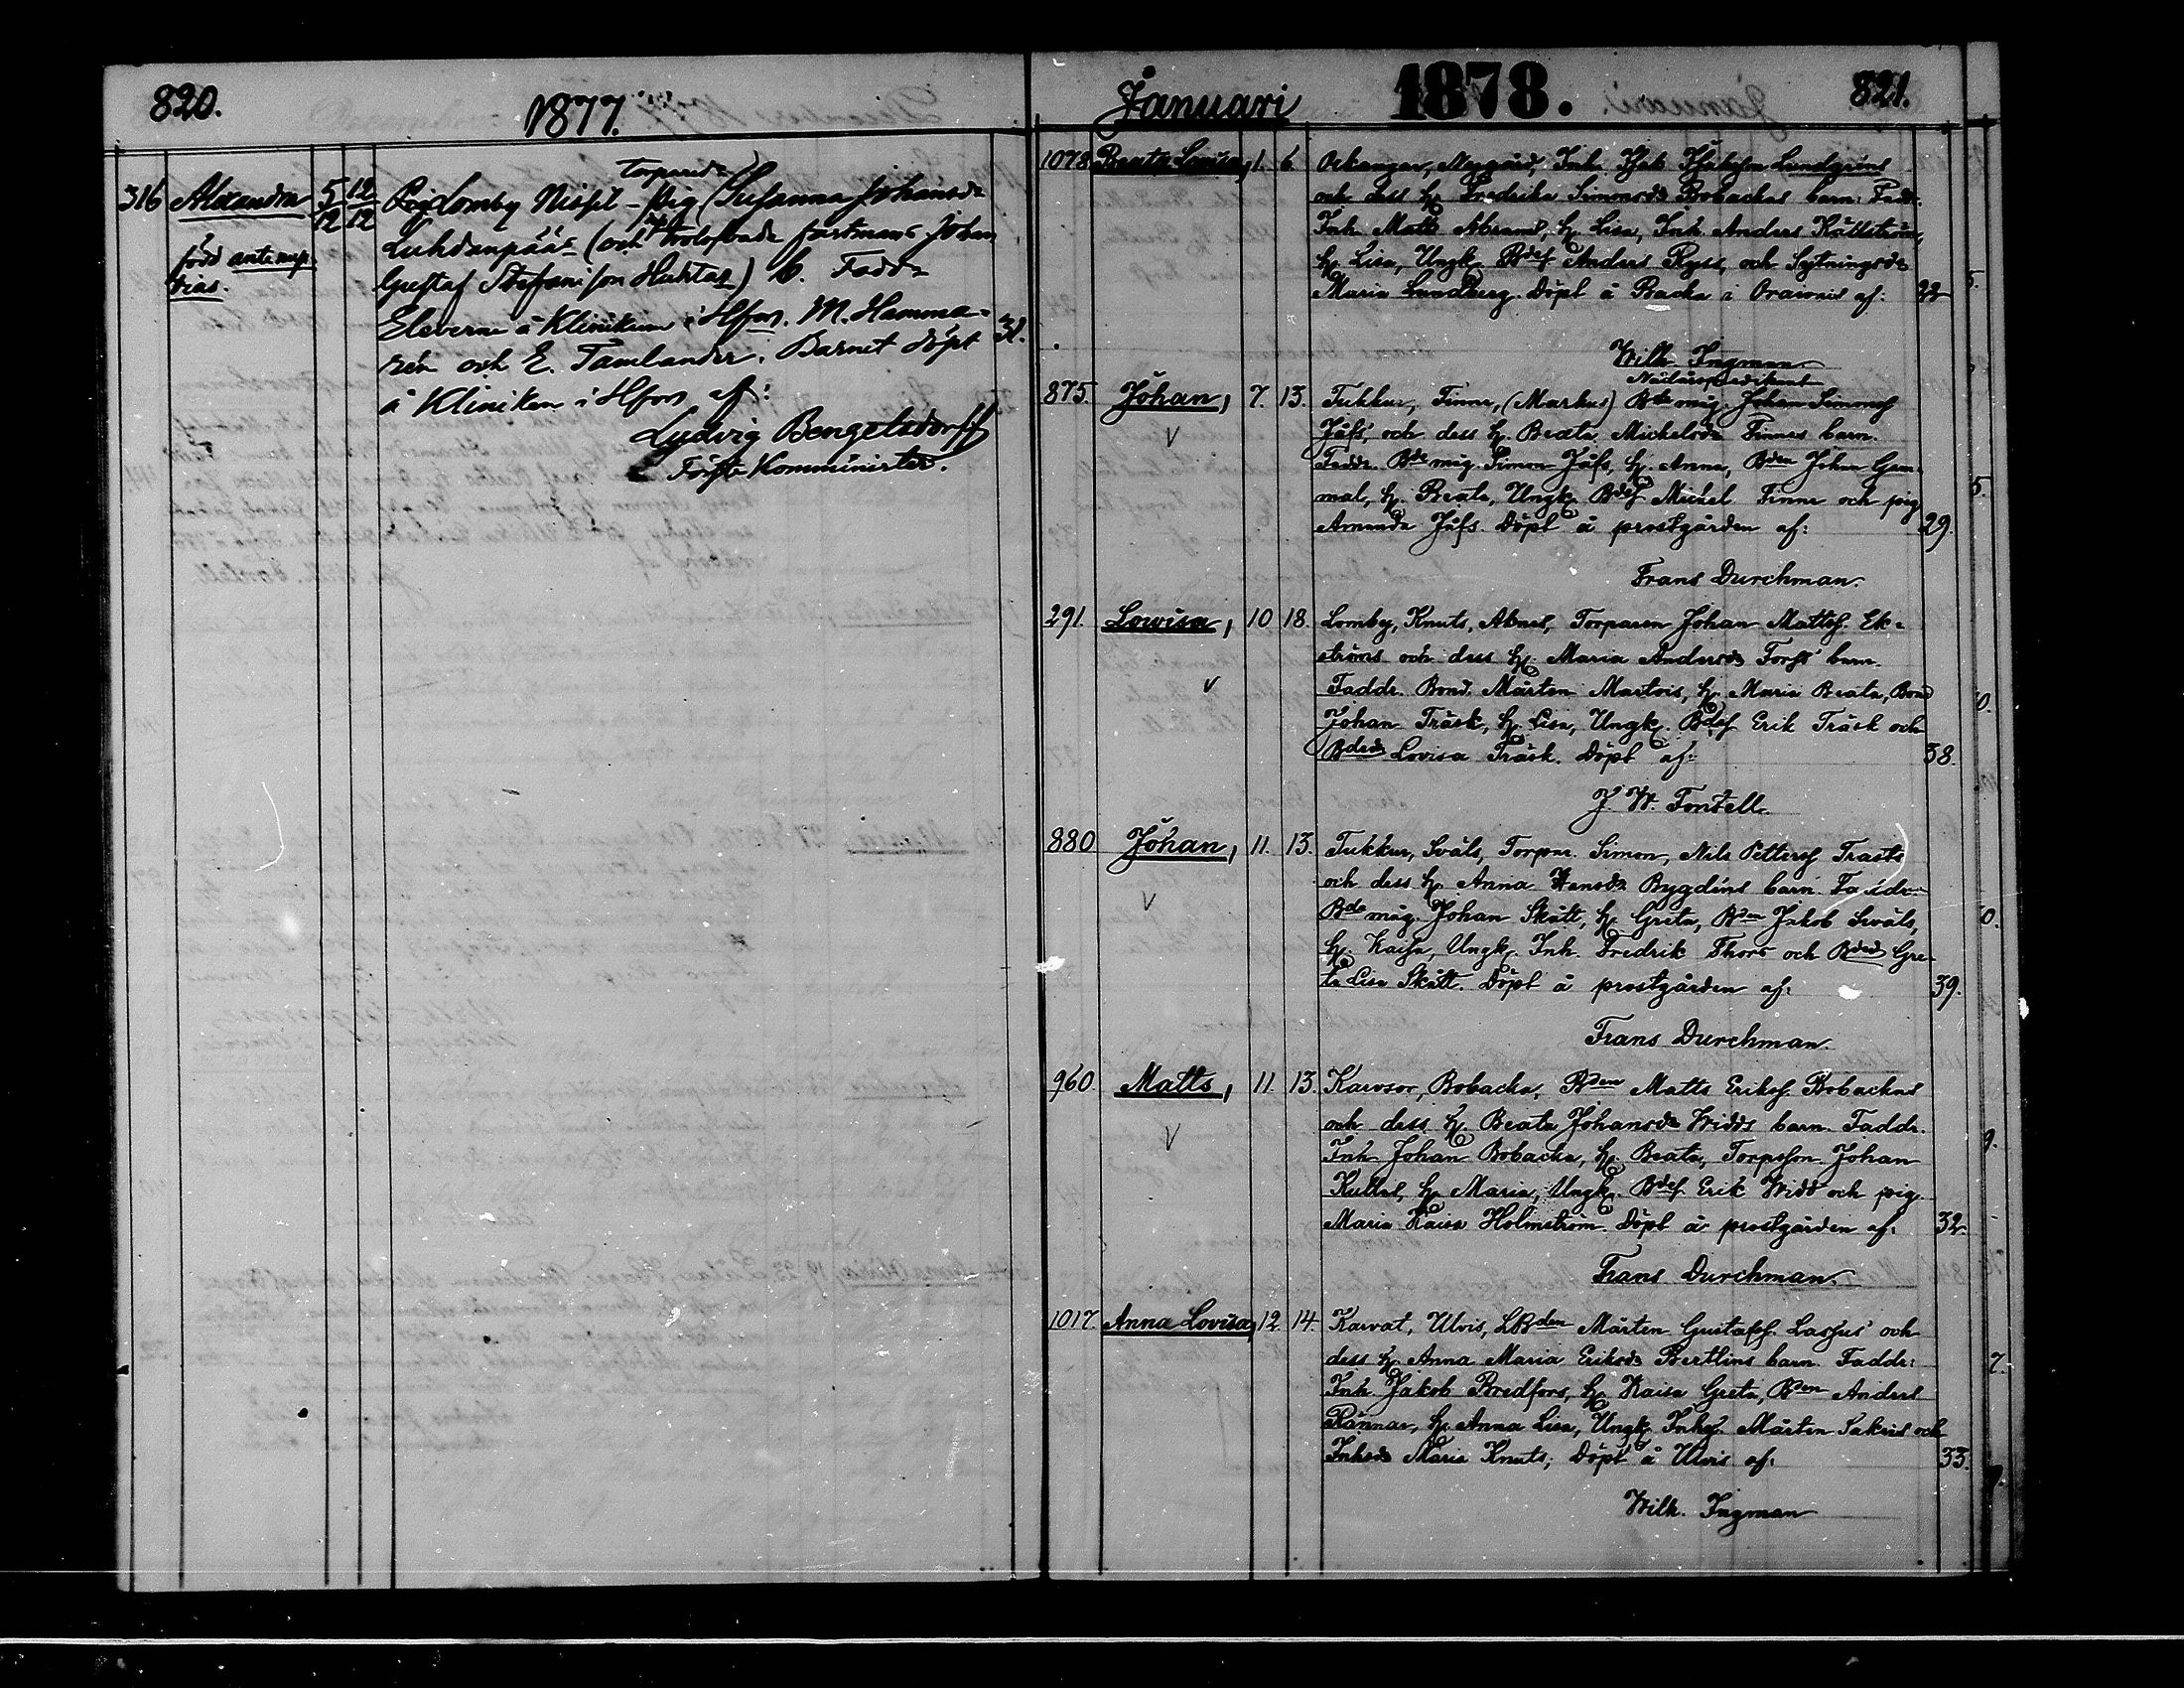 820.
1877.
316 Alexandra 5/12 12/12
född ante nup-
tias.
torpared:r
Lomby Nissil - Pig. Susanna Johansdr
Luhdanpääs (och trolofvade Johan
Gustaf Stefanson Huhtas) b. Faddr
Eleverna å Kliniken i Hfors. M. Hamma-
rén och E. Tamlander. Barnet döpt 31.
å Kliniken i Hfors af:
Ludvig Bengelsdorff
Förste Komminister.
Januari 1878. 821.
1078. Beata Lovisa, 1. 6. Oskangar, Nygård, Inh. Lundgréns
och dess H. Fredrika Simonsdr Bobackas barn. Faddr.
Inh. Matts Abrams, H. Lisa, Inh. Anders Källström,
H. Lisa, Ungk. Bdes. Anders Ryss, och Sytningsdr
Maria Lundberg. Döpt å Backa i Oravais af: 22
Wilh. Ingman
Nödårspredikant
875. Johan, 7. 13. Tukkur, Finne, (Markus) Bde måg. Johan Simonss.
Jåfs, och dess H. Beata Michelsdr Finnes barn.
Faddr. Bde måg. Simon Jåfs, H. Anna, Bden Johan Gam-
mal, H. Beata, Ungk. Bdes. Mickel Finne och pig.
Amanda Jåfs. Döpt å prostgården af: 29.
Frans Durchman.
291. Lowisa, 10 18. Lomby, Knuts, Abras, Torparen Johan Mattss. Ek-
ströms och dess H. Maria Andersdr Forss' barn.
Faddr. Bond. Mårten Martois, H. Maria Beata, Bond
Johan Träsk, H. Lisa, Ungk. Bdes. Erik Träsk och
Bdesdr Lovisa Träsk. Döpt af: 38.
J. W. Fontell.
880 Johan, 11. 13. Tukkur, Svåls, Torpar. Simon, Nils Petterss. Trasts
och dess H. Anna Hansdr Bygdéns barn. Faddr.
Bde måg. Johan Skått, H. Greta, Bden Jakob Svåls,
H. Kaisa, Ungk. Inh. Fredrik Thors och Bdesd. Gre-
ta Lisa Skått. Döpt å prostgården af: 39.
Frans Durchman.
960. Matts, 11. 13. Karvsor, Bobacka, Bden Matts Eriks. Bobackas
och dess H. Beata Johansdr Widds barn. Faddr.
Inh. Johan Bobacka, H. Beata, Torpsson Johan
Kullas, H. Maria, Ungk. Bdes. Erik Widd och pig.
Maria Kaisa Holmström. Döpt å prostgården af: 32.
Frans Durchman.
1017. Anna Lovisa, 12. 14. Karvat, Ulvis, LBden Mårten Gustafss. Lassus' och
dess H. Anna Maria Eriksdr Bertlins barn. Faddr:
Inh. Jakob Bredfors, H. Kaisa Greta, Bden Anders
Rännar, H. Anna Lisa, Ungk. Inhs. Mårten Sakris och
Inhsdr Maria Knuts; Döpt å Ulvis af: 33.
Wilh. Ingman